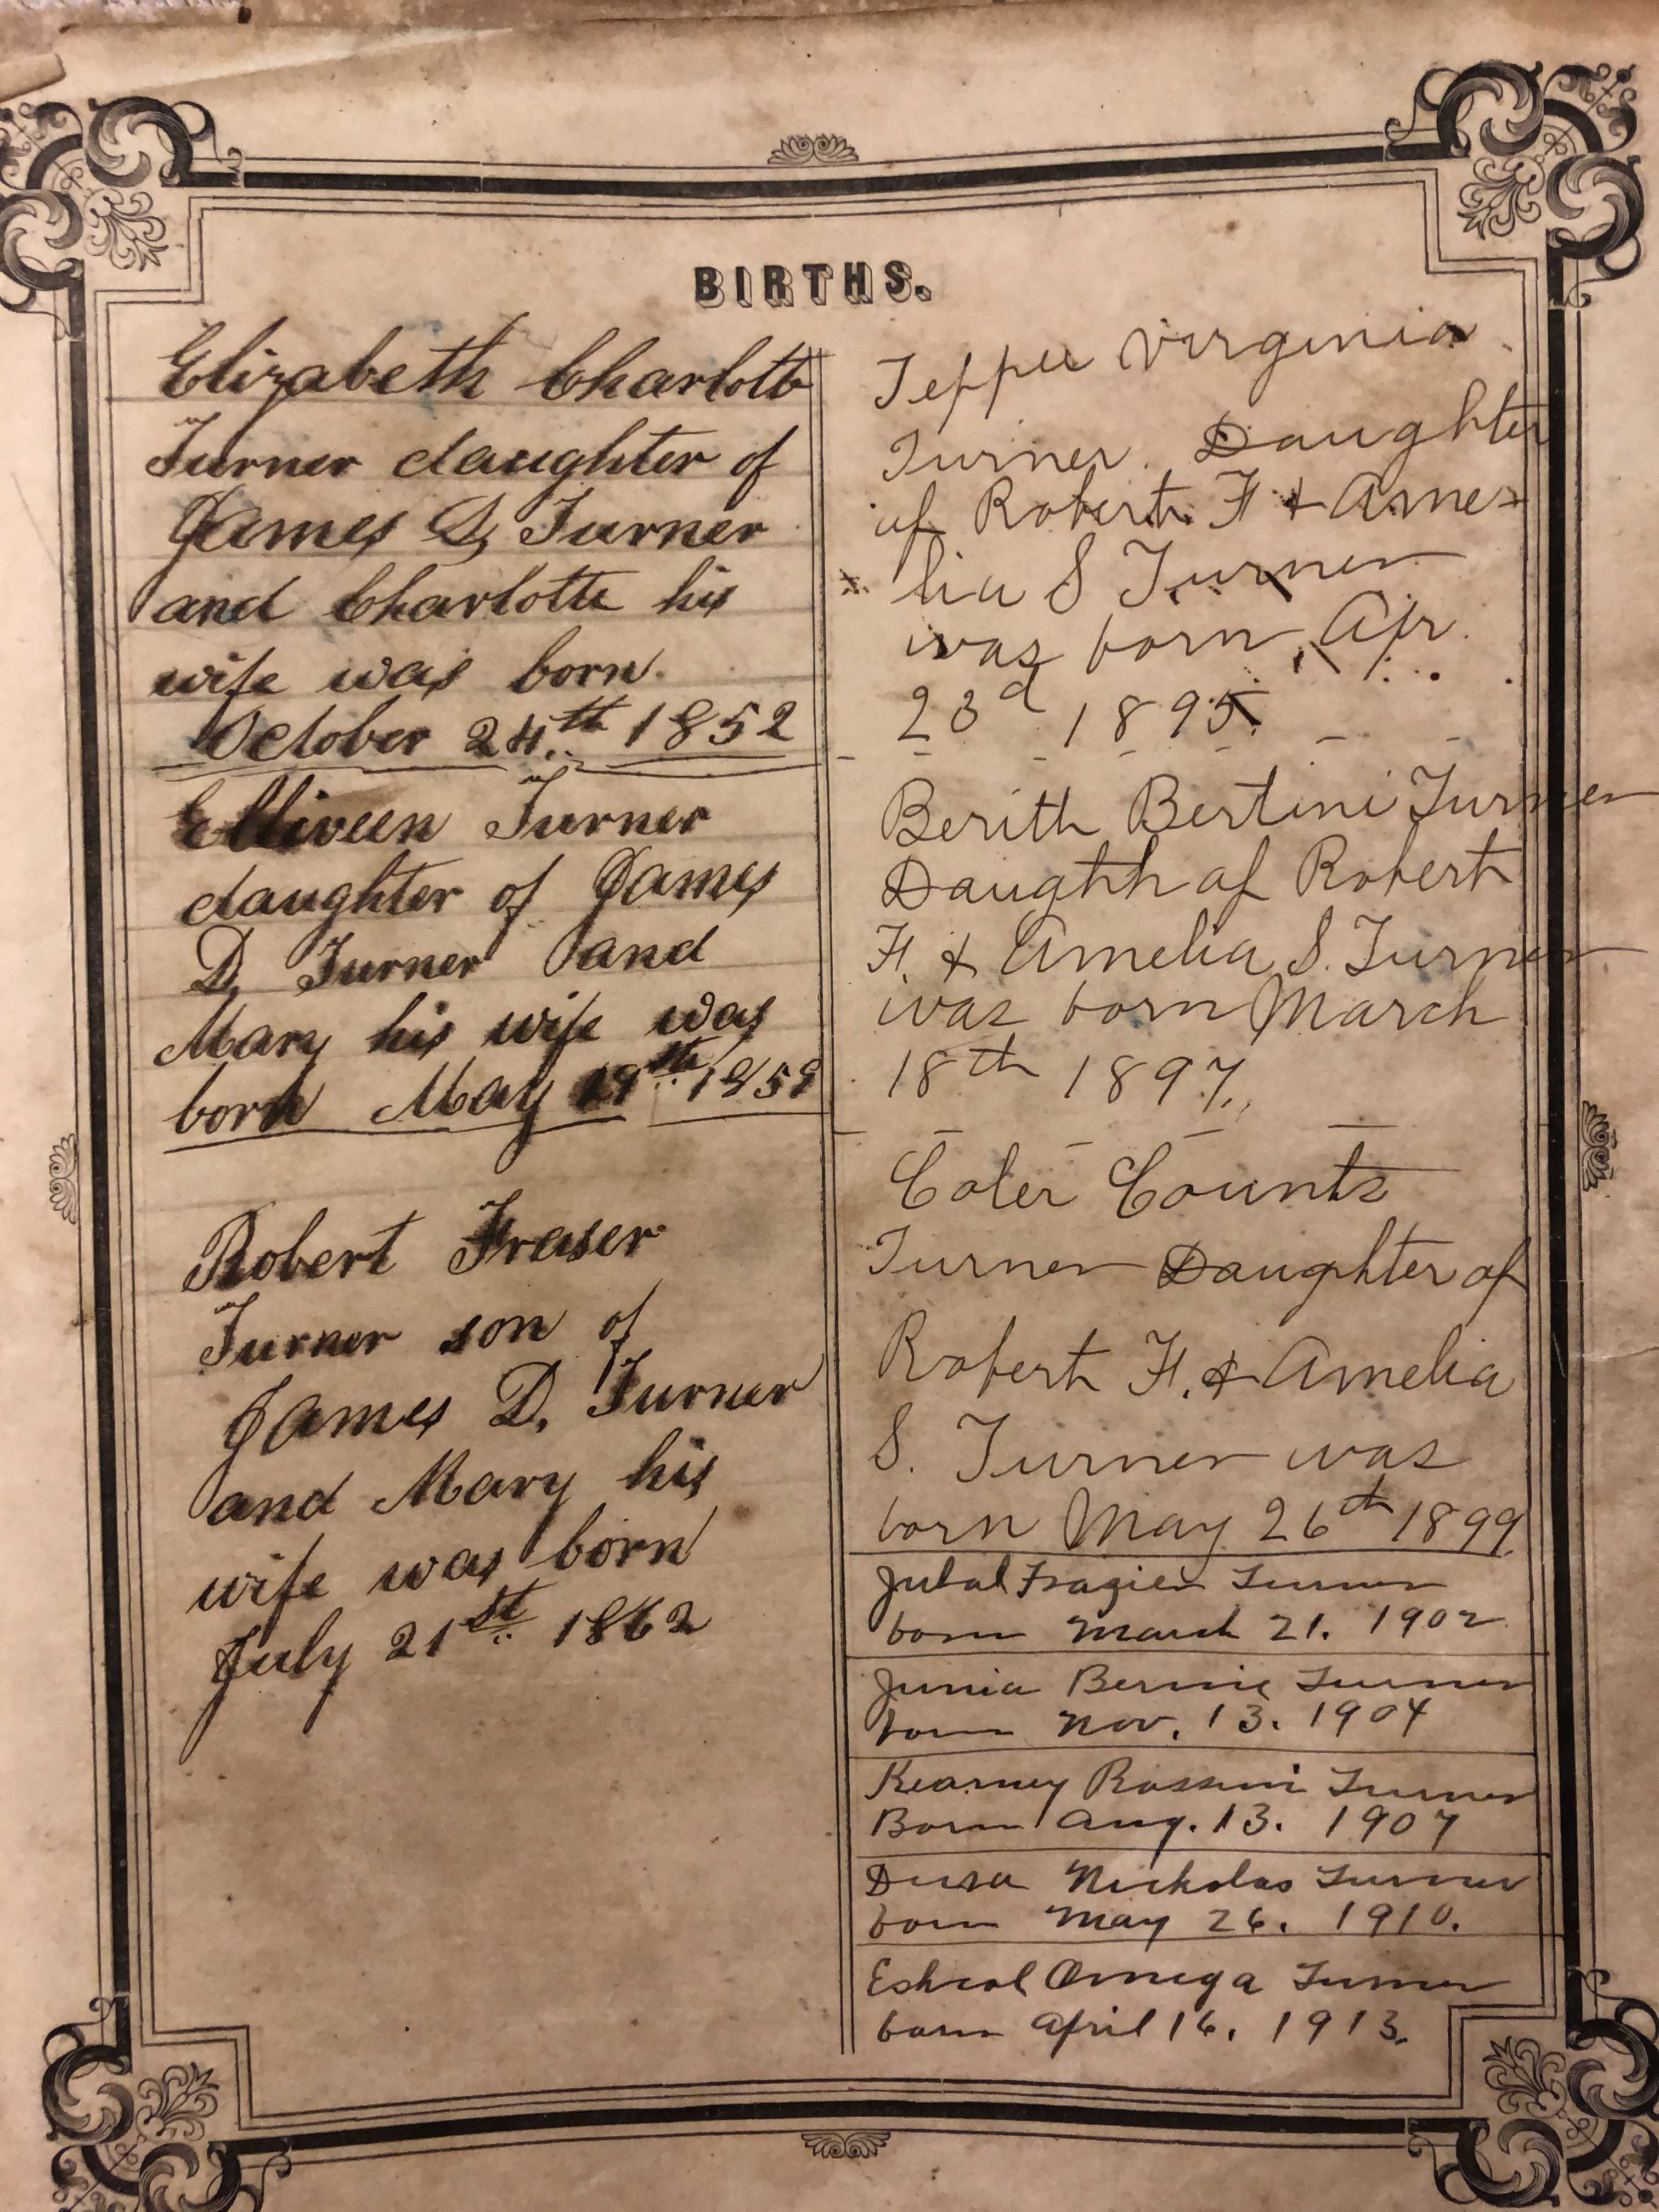 BIRTHS.
Elizabeth Charlott
Turner daughter of
James D, Turner
and Charlotte his
wife was born.
October 24th 1852
Turner
daughter of James
D, Turner and
Mary his wife was
born May 19th 1859
Robert Fraser
Turner son of
James D. Turner
and Mary his
wife was born
July 21st 1862
Virginia
Turner. Daughter
of Robert F & Ame-
lia S Turner
was born Apr.
23d 1895.
Berith Bertini Turner
of Robert
F. & Amelia S. Turner
was born March
18th 1897.
Coler Counts
Turner Daughter of
Robert F. & Amelia
S. Turner was
born May 26th 1899
Jubal Frazier Turner
born March 21. 1902
Junia Bernie Turner
born Nov. 13. 1904
Kearney Rossini Turner
Born Aug. 13. 1907
Nickolas Turner
born May 26. 1910.
Eshcol Omega Turner
born April 16. 1913.